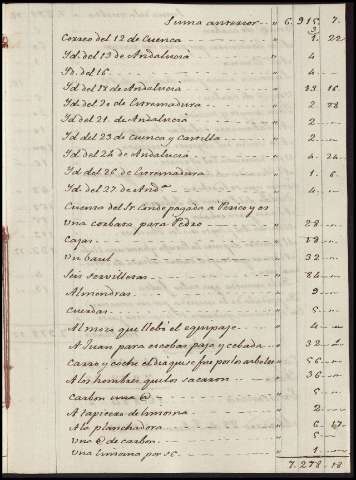 Suma anterior -- " 6. 915. 7.
Correo del 12 de Cuenca " 1. 22
Yd. del 13 de Andalucia " 4
Yd. del 16 " 4
Yd del 18 de Andalucia " 13 16
Yd del 20 de Estremadura " 2 28
Yd del 21 de Andalucia " 2
Yd del 23 de Cuenca y Castilla " 2
Yd del 24 de Andalucia " 4 24
Yd del 26 de Estremadura " 1 6
Yd del 27 de And.a " 4
Cuenta del Sr. Conde pagada a Perico y es
una corbata para Pedro " 28
Cajas " 18
Un baul " 32
Seis servilletas " 84
Almendras " 9
Cuerdas " 5
Al mozo que llebó el equipaje " 4
A Juan para escobas paja y cebada " 32 2
Carro y coche el dia que se fue por los arboles " 56
A los hombres que los sacaron " 36
Carbon una @ " 5
A tapiceros de limosna " 2
A la planchadora " 6 17
una @ de carbon " 5
una limosna " 1
7. 278. 18